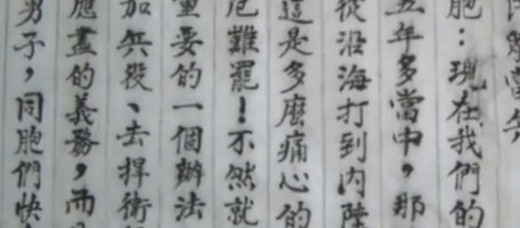 胞：現在我們的
五年多當中，那
從沿海打到内陸
這是多麽痛心的
厄難罷！不然就
重要的一個辦法
加兵役、去捍衛
應盡的義務，而
男子，同胞們快